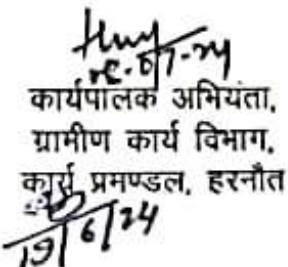 कार्यपालक अभियंता,
ग्रामीण कार्य विभाग,
कार्य प्रमण्डल, हरनौत
19/6/24